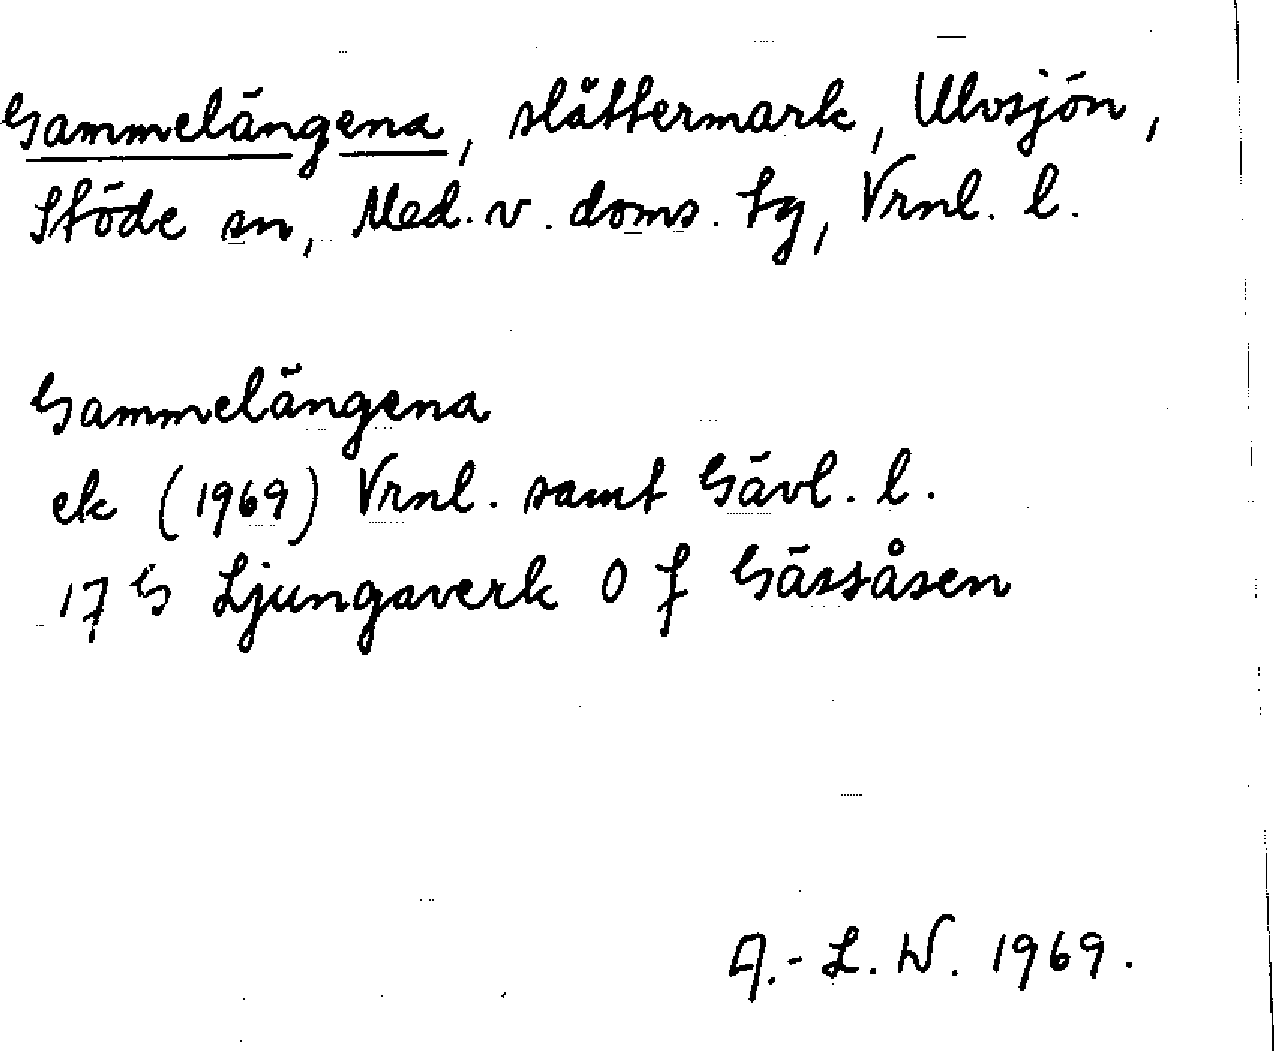 Gammelängena, slåttermark, Ulvsjön,
Stöde sn, Med. v. doms. tg, Vrnl. l.
Gammelängena
ek (1969) Vrnl. samt Gävl. l.
17 G Ljungaverk 0 f Gässåsen
A.-L. W. 1969.